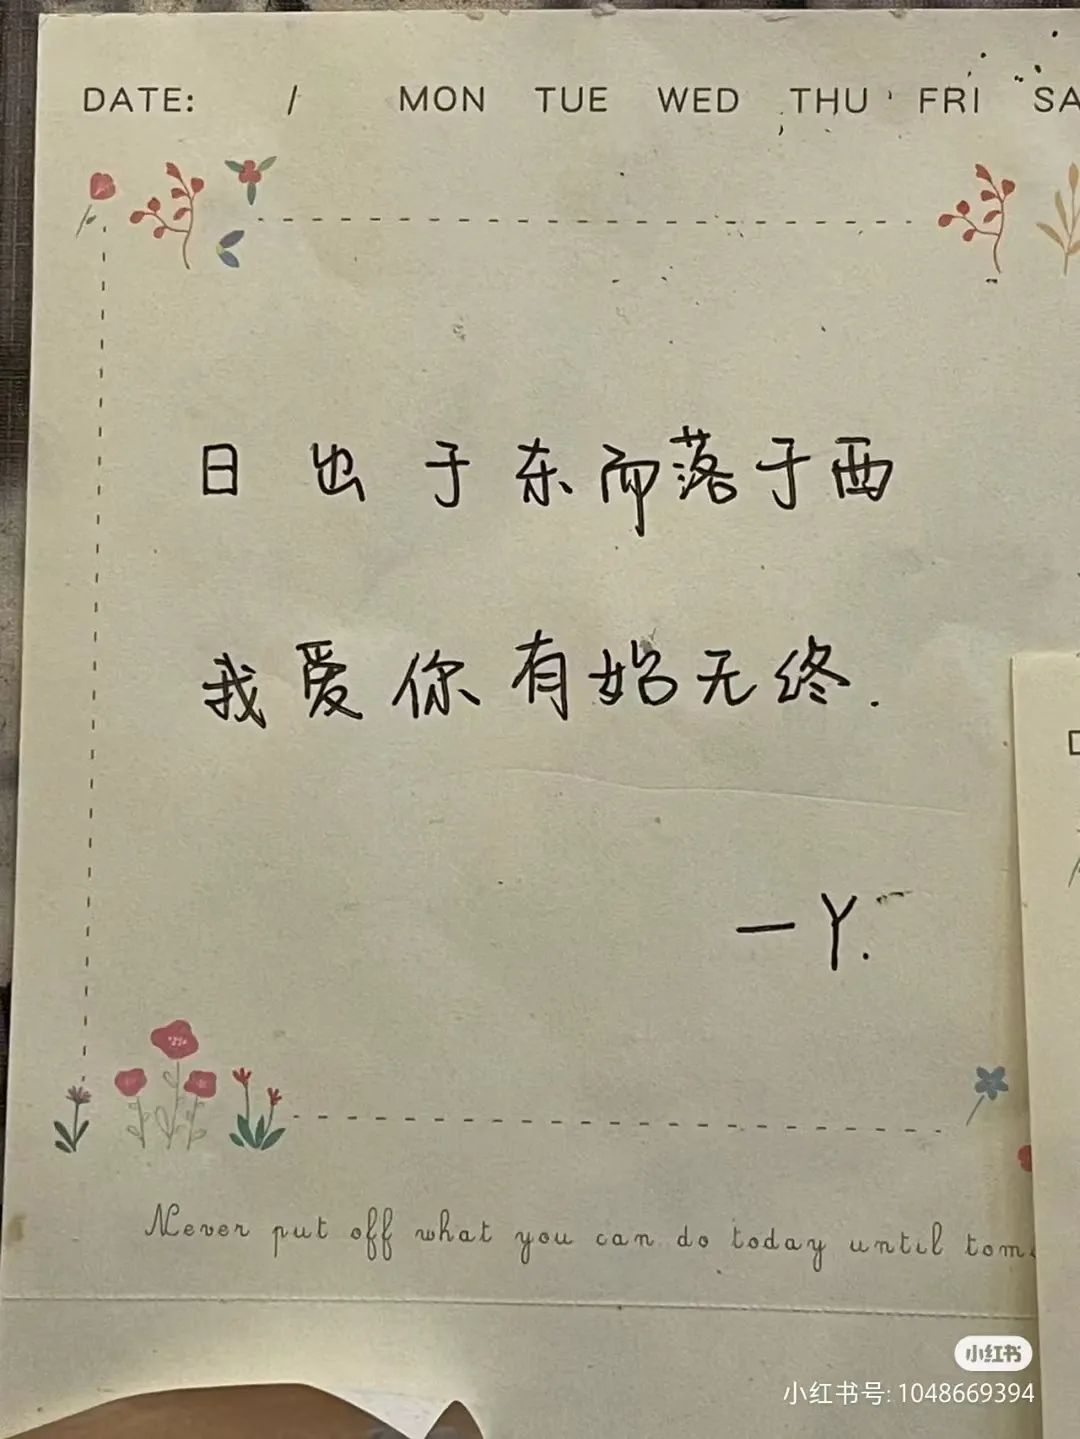 DATE: / MON TUE WED THU FRI SA
日出于东而落于西
我爱你有始无终.
一丫.
Never put off what you can do today until tom
小红书
小红书号: 1048669394